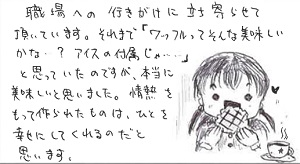 職場への行きがけに立ち寄らせて
頂いています。それまで「ワッフルってそんな美味しい
かな…？アイスの付属じゃ……」
と思っていたのですが、本当に
美味しいと思いました。情熱を
もって作られたものは、ひとを
幸せにしてくれるのだと
思います。